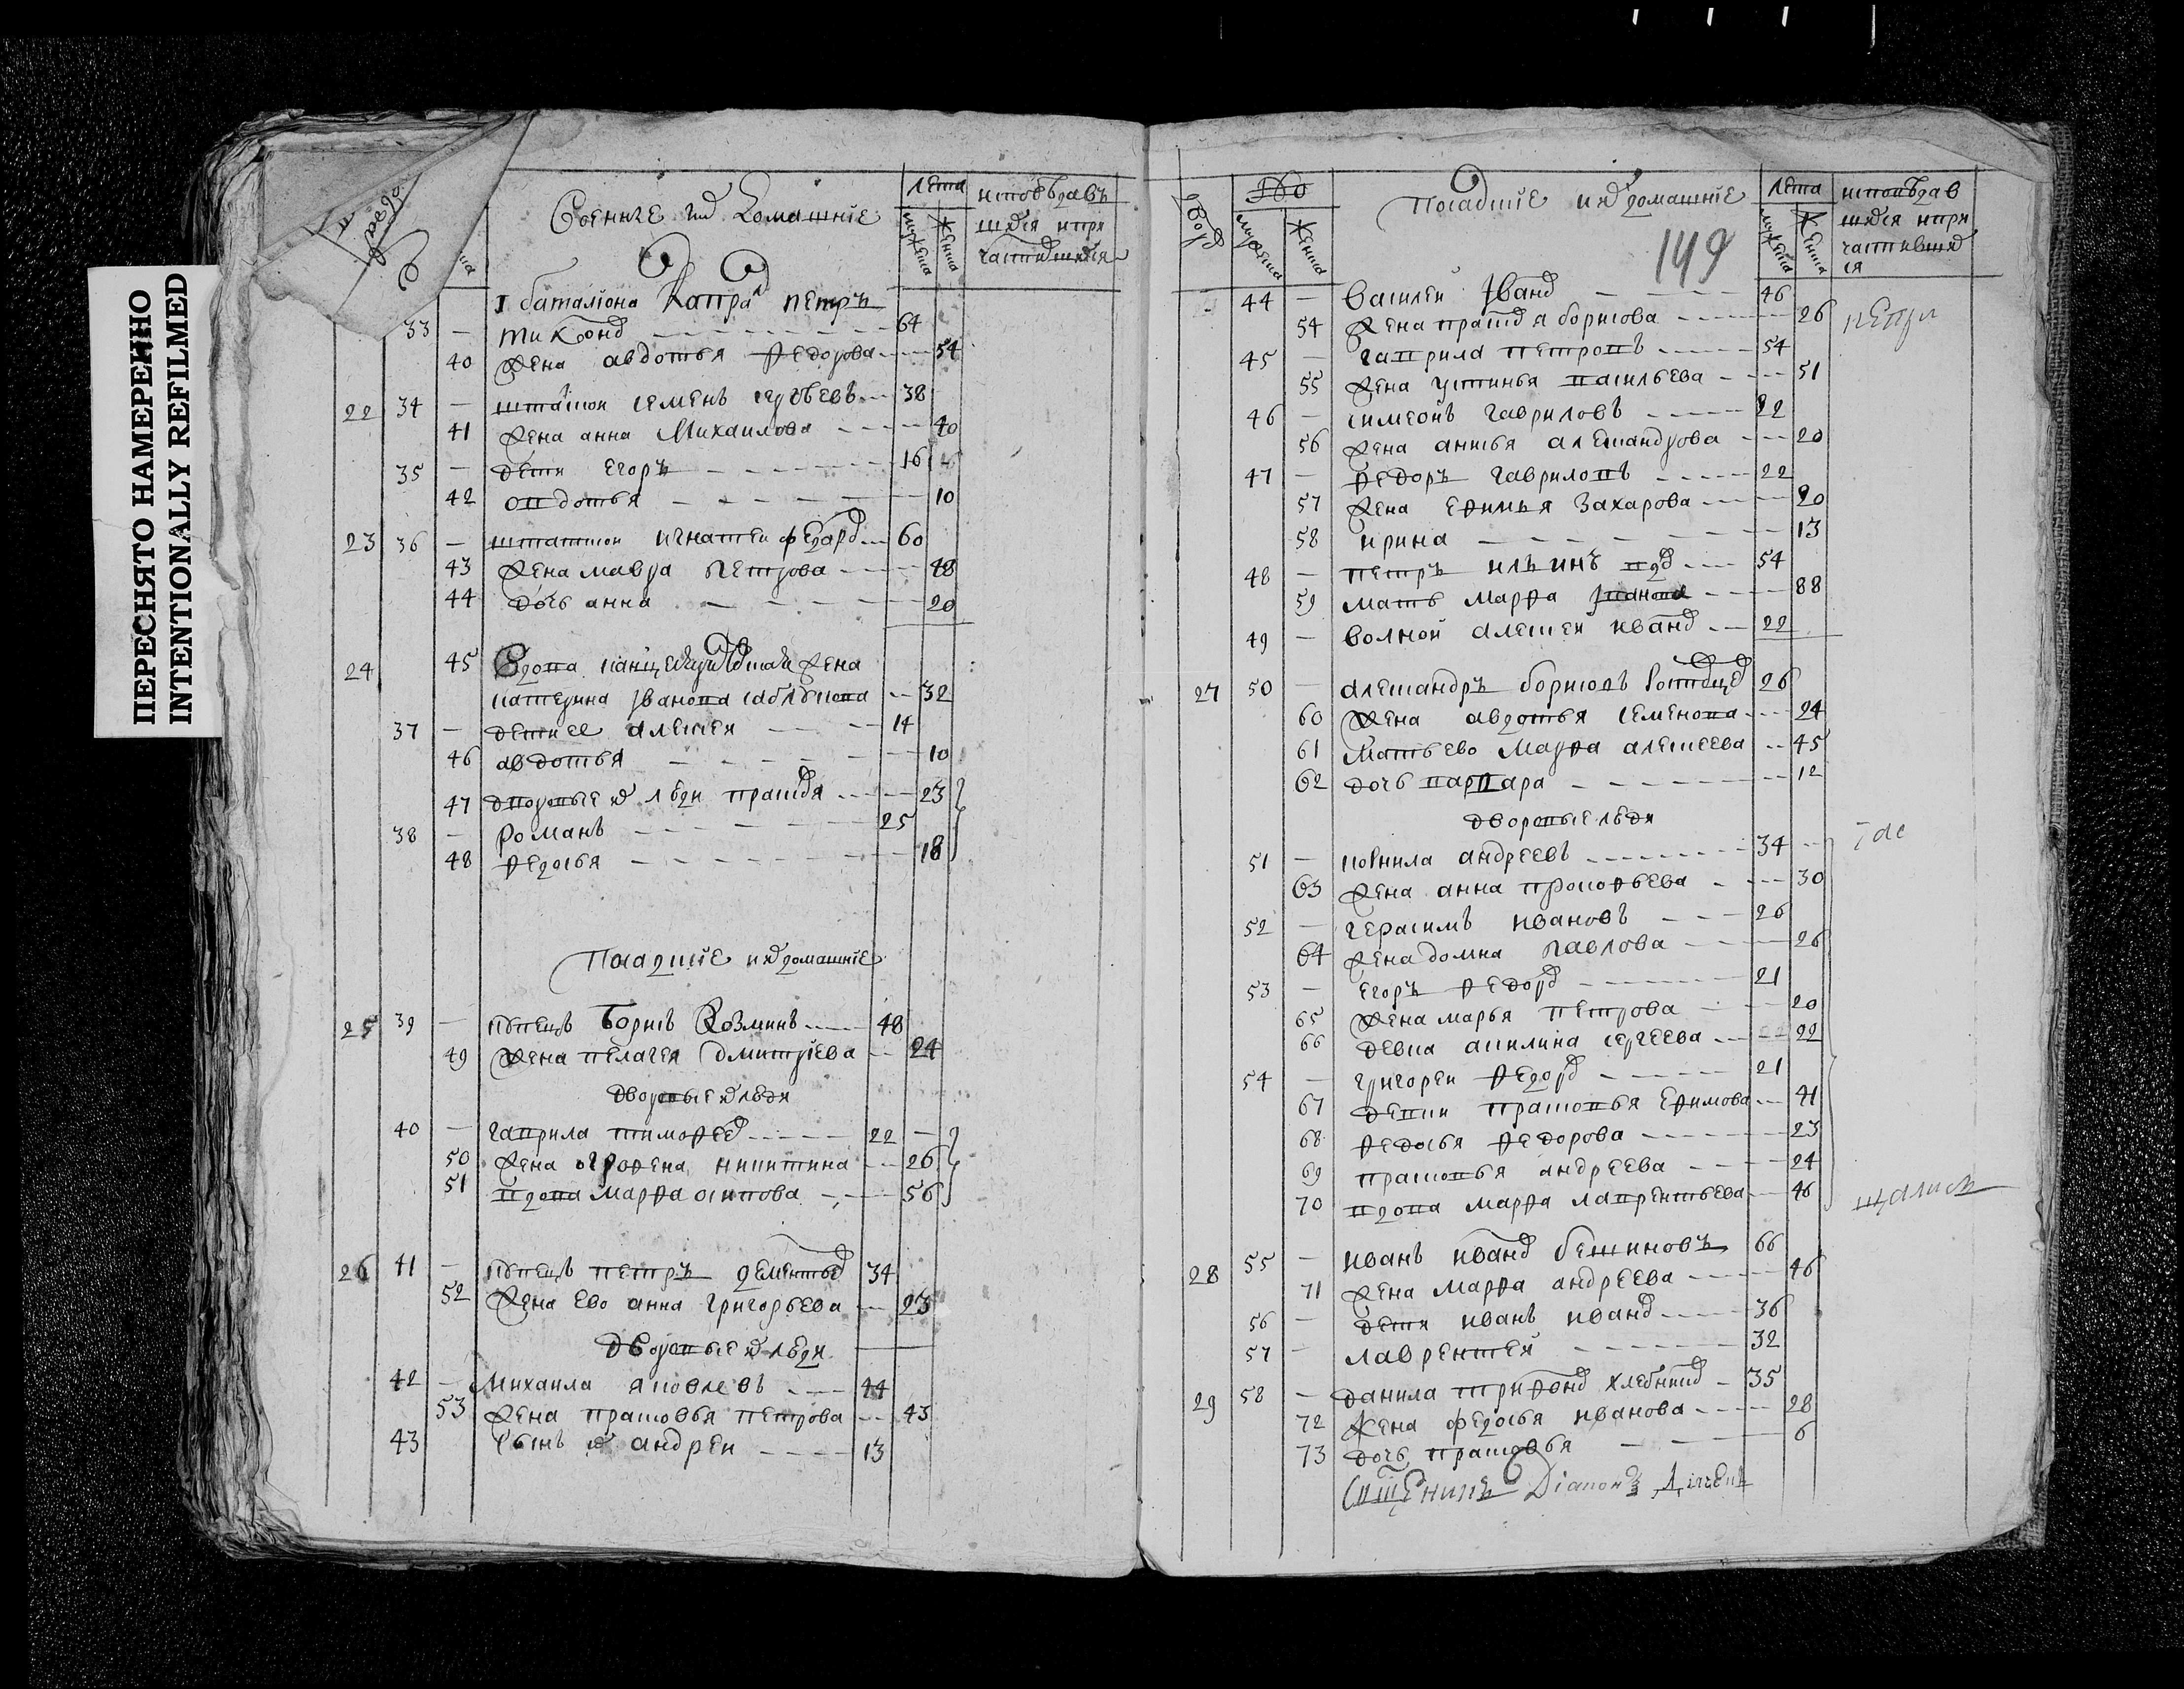 ПЕРЕСНЯТО НАМЕРЕННО
INTENTIONALLY REFILMED
Военние их домашнiе
лета
исповѣдавъ
шихся и при
частившихся
мужеска
женска
1 баталiона Капрал петръ
33 — тихонов 64
40 жена авдотья федорова 54
22 34 — семенъ сергѣевъ 38
41 жена анна Михаилова 40
35 — дети егоръ 16
42 овдотья 10
23 36 — игнатеи федоров 60
43 жена мавра петрова 48
44 дочь анна 20
24 45 Вдова жена
катерина Iванова саблукова 32
37 — дети ее алексеи 14
46 авдотья 10
47 дворовые их люди прасковья 23
38 — романъ 25
48 федосья 18
Посадскiе и их домашнiе
25 39 — купецъ Борисъ Козминъ 48
49 жена пелагея дмитрiева 24
дворовые их люди
40 — гаврила тимофеев 22
50 жена огрофена никитина 26
51 вдова марфа осипова 56
26 41 — купецъ петръ дементьев 34
52 жена ево анна григорьева 23
дворовые их люди
42 — михаила яковлевъ 44
53 жена прасковья петрова 43
43 сынъ их андреи 13
двор
число
мужеска
женска
Посадскiе и их домашнiе
149
лета
мужеска
женска
исповѣдав
шихся и при
частивших
ся
44 — василеи Iванов 46
54 жена прасковья борисова 26
45 — гаврила петровъ 54
55 жена устинья васильева 51
46 — симеонъ гавриловъ 22
56 жена аксинья александрова 20
47 — федоръ гавриловъ 22
57 жена ефимья захарова 20
58 ирина 13
48 — петръ ильинъ вдов 54
59 мать марфа Iванова 88
49 — волной алексеи иванов 22
27 50 — александръ борисовъ 26
60 жена авдотья семенова 24
61 мать ево марфа алексеева 45
62 дочь варвара 12
дворовые люди
51 — корнила андреевъ 34
63 жена анна прокофьева 30
52 — герасимъ ивановъ 26
64 жена домна павлова 26
53 — егоръ федоров 21
65 жена марья петрова 20
66 девка акилина сергеева 22
54 — григореи федоров 21
67 девки прасковья ефимова 41
68 федосья федорова 23
69 прасковья андреева 24
70 вдова марфа лаврентьева 46
28 55 — иванъ иванов 66
71 жена марфа андреева 46
56 — дети иванъ иванов 36
57 — лаврентеи 32
29 58 — данила трифонов хлебников 35
72 жена федосья иванова 28
73 дочь прасковья 6